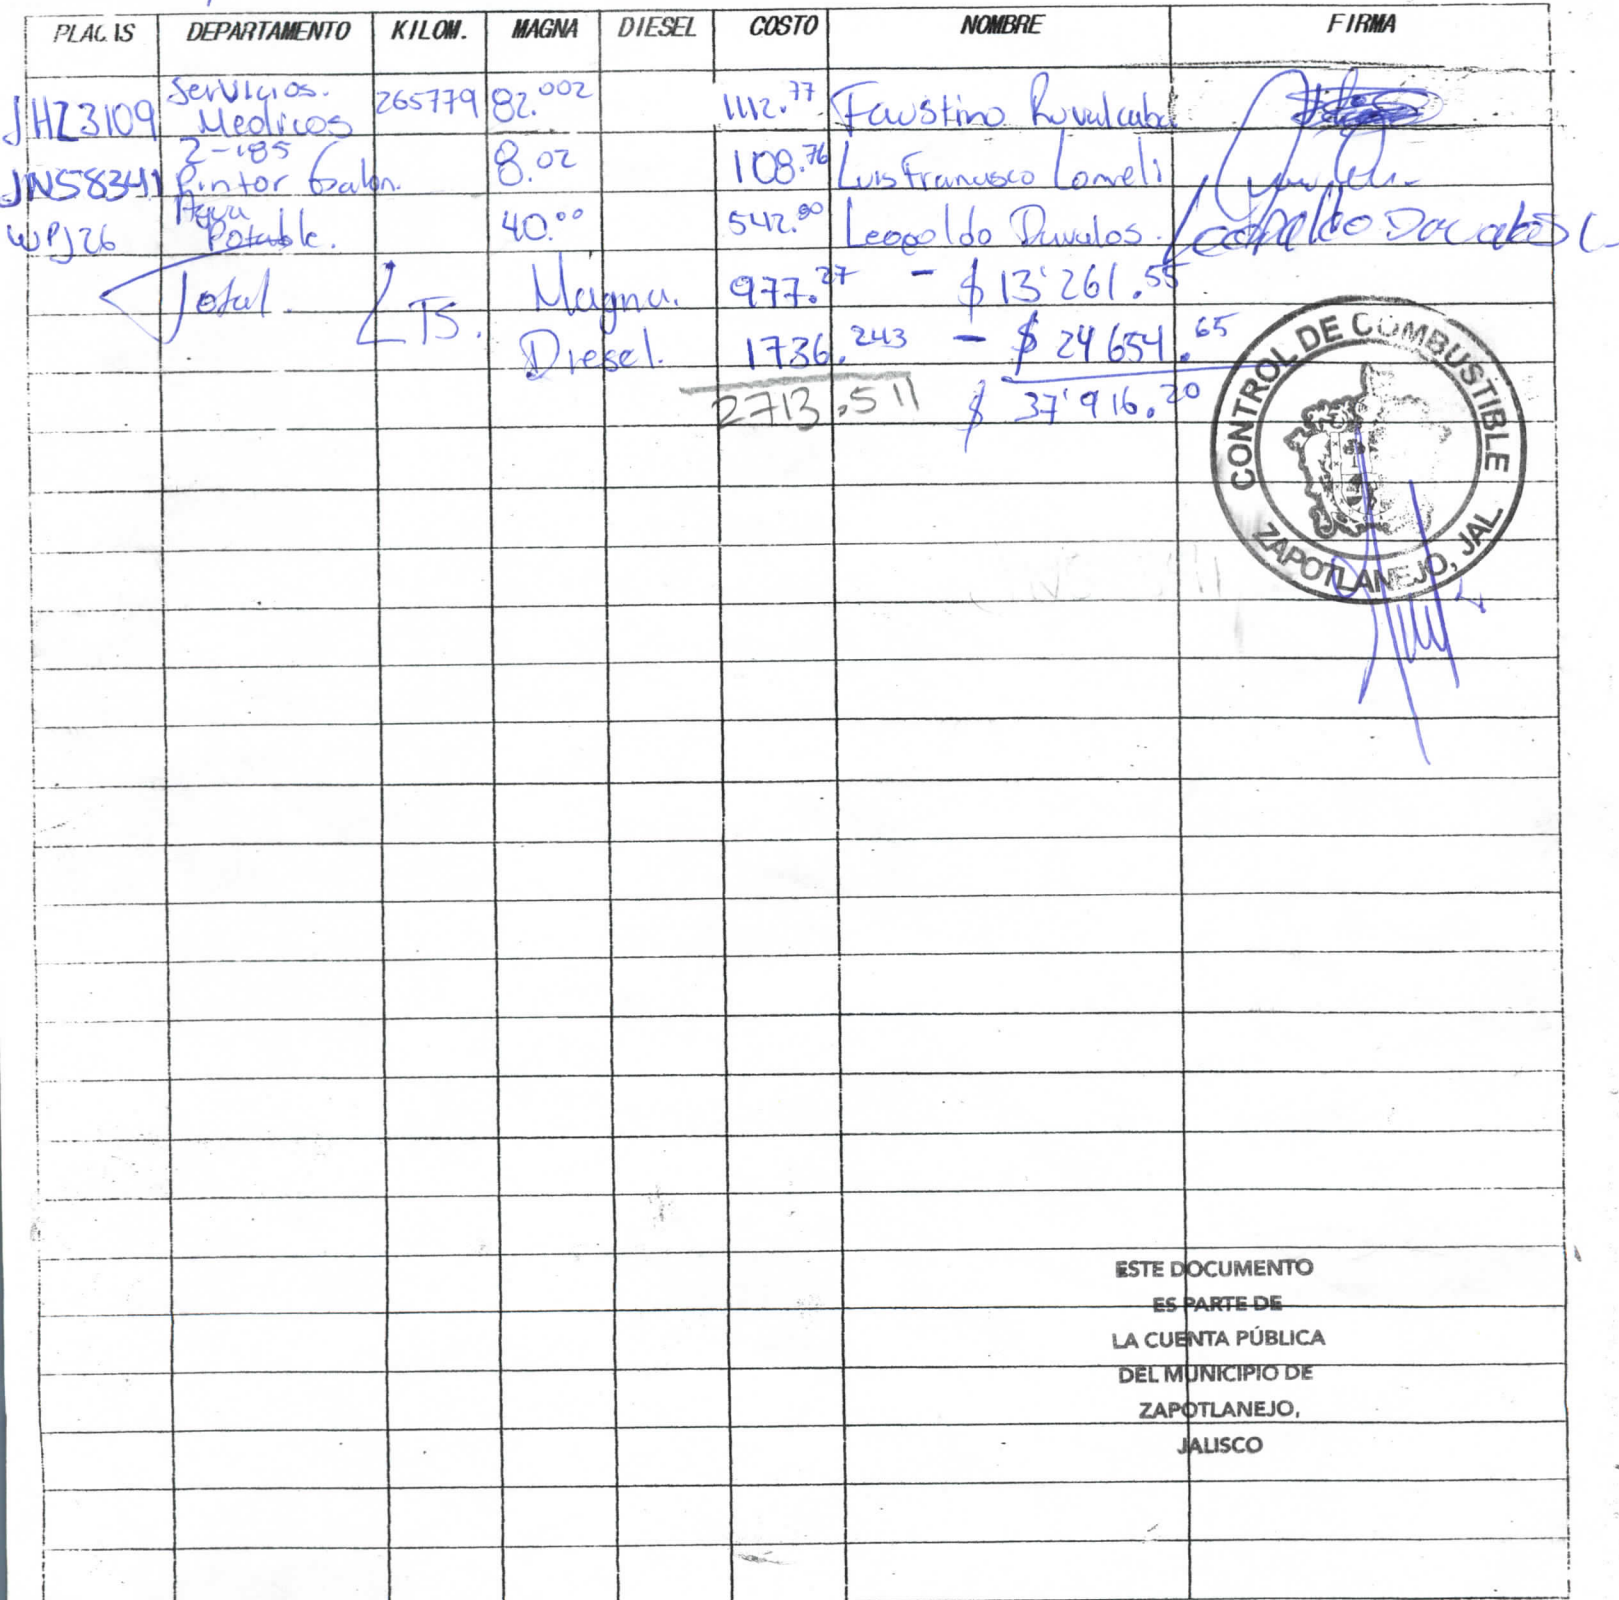 PLACAS DEPARTAMENTO KILOM. MAGNA DIESEL COSTO NOMBRE FIRMA
JHZ3109 Servicios. Medicos 265779 82.002 1112.77 Faustino Ruvalcaba
JN58341 2-185 Pintor Galon. 8.02 108.76 Luis Francisco Lomeli
WPJ26 Agua Potable. 40.00 542.80 Leopoldo Davalos. Leopoldo Davalos
Total LTS. Magna. 977.27 - $13'261.55
Diesel. 1736.243 - $24654.65
2713.511 $37'916.20
CONTROL DE COMBUSTIBLE
ZAPOTLANEJO, JAL
ESTE DOCUMENTO
ES PARTE DE
LA CUENTA PÚBLICA
DEL MUNICIPIO DE
ZAPOTLANEJO,
JALISCO